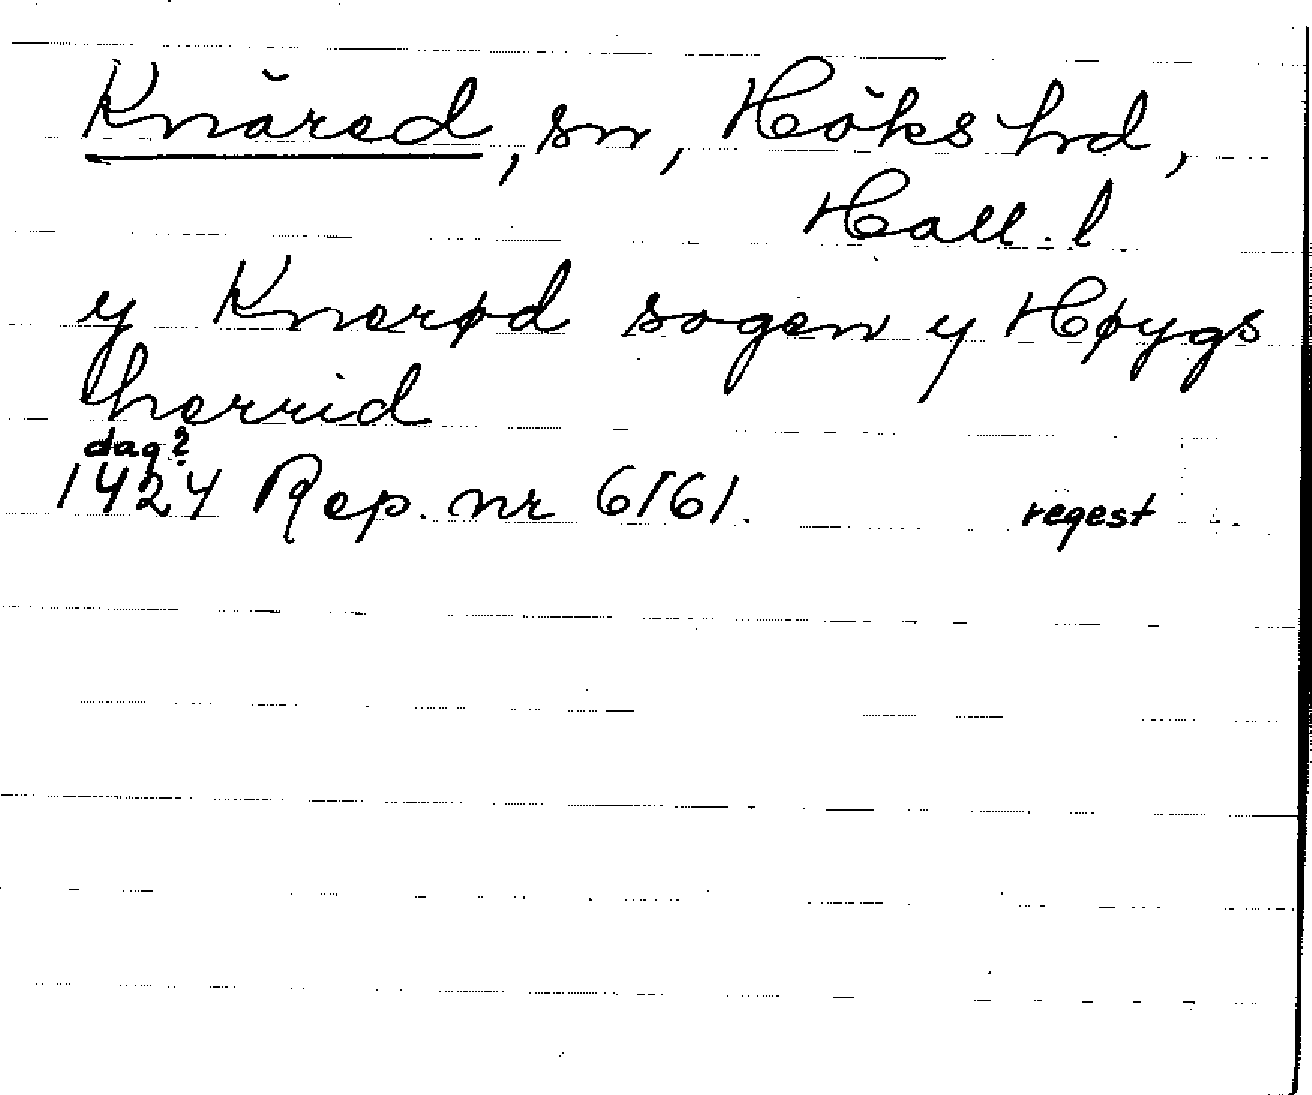 Knäred, sn, Höks hd,
Hall. l
y Knerød sogen y Høygs
herrid
dag?
1424 Rep. nr 6161. regest